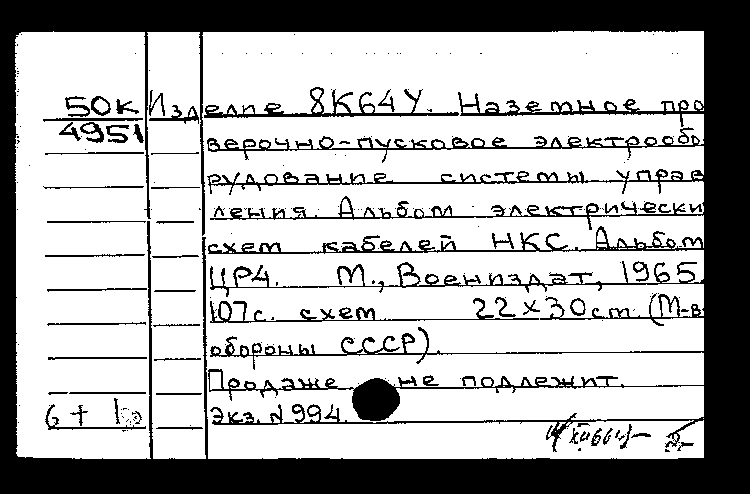 50К Изделие 8К64У. Наземное про
4951
верочно-пусковое электрообо
рудование системы управ
ления. Альбом электрически
схем кабелей НКС. Альбом
ЦР4. М., Воениздат, 1965.
107с. схем 22×30см. (М-в
обороны СССР).
Продаже не подлежит.
6+1 Экз. №994.